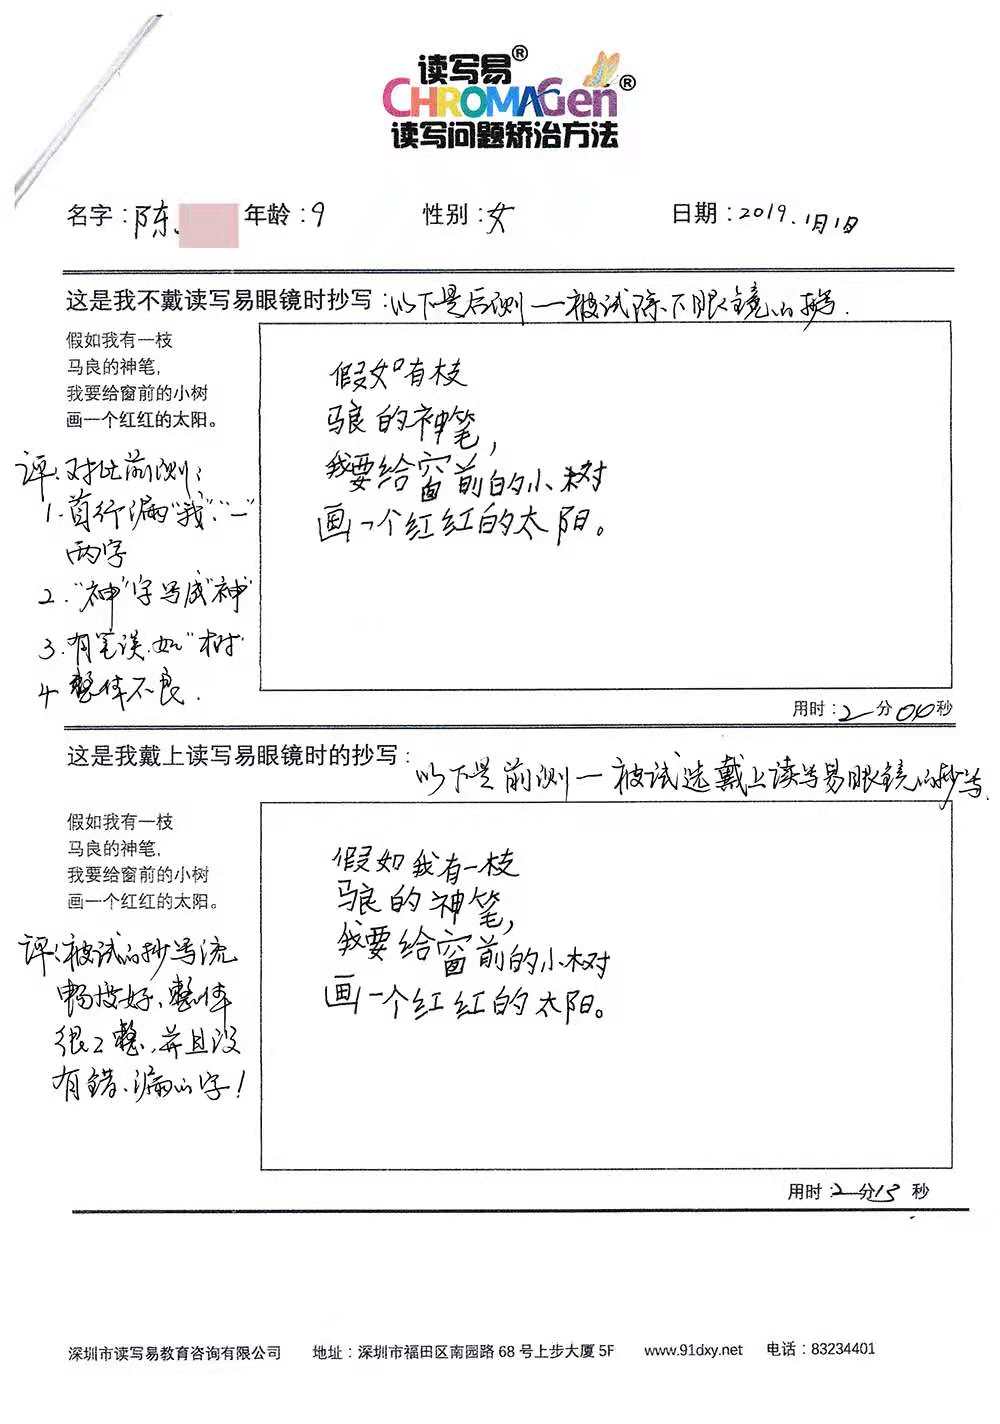 读写易®
CHROMAGen®
读写问题矫治方法
名字：陈 年龄：9 性别：女 日期：2019.1月1日
这是我不戴读写易眼镜时抄写：以下是后测—被试除下眼镜的抄写.
假如我有一枝
马良的神笔，
我要给窗前的小树
画一个红红的太阳。
假如有枝
马良的神笔，
我要给窗前的小树
画一个红红的太阳。
评：对比前测：
1.首行漏“我”、“一”
两字
2.“神”字写成“神”
3.有笔误.如“树”
4 整体不良.
用时：2分00秒
这是我戴上读写易眼镜时的抄写：
以下是前测—被试选戴上读写易眼镜的抄写.
假如我有一枝
马良的神笔，
我要给窗前的小树
画一个红红的太阳。
假如我有一枝
马良的神笔，
我要给窗前的小树
画一个红红的太阳。
评：被试的抄写流
畅度好、整体
很工整，并且没
有错、漏的字！
用时：2分15秒
深圳市读写易教育咨询有限公司 地址：深圳市福田区南园路 68 号上步大厦 5F www.91dxy.net 电话：83234401